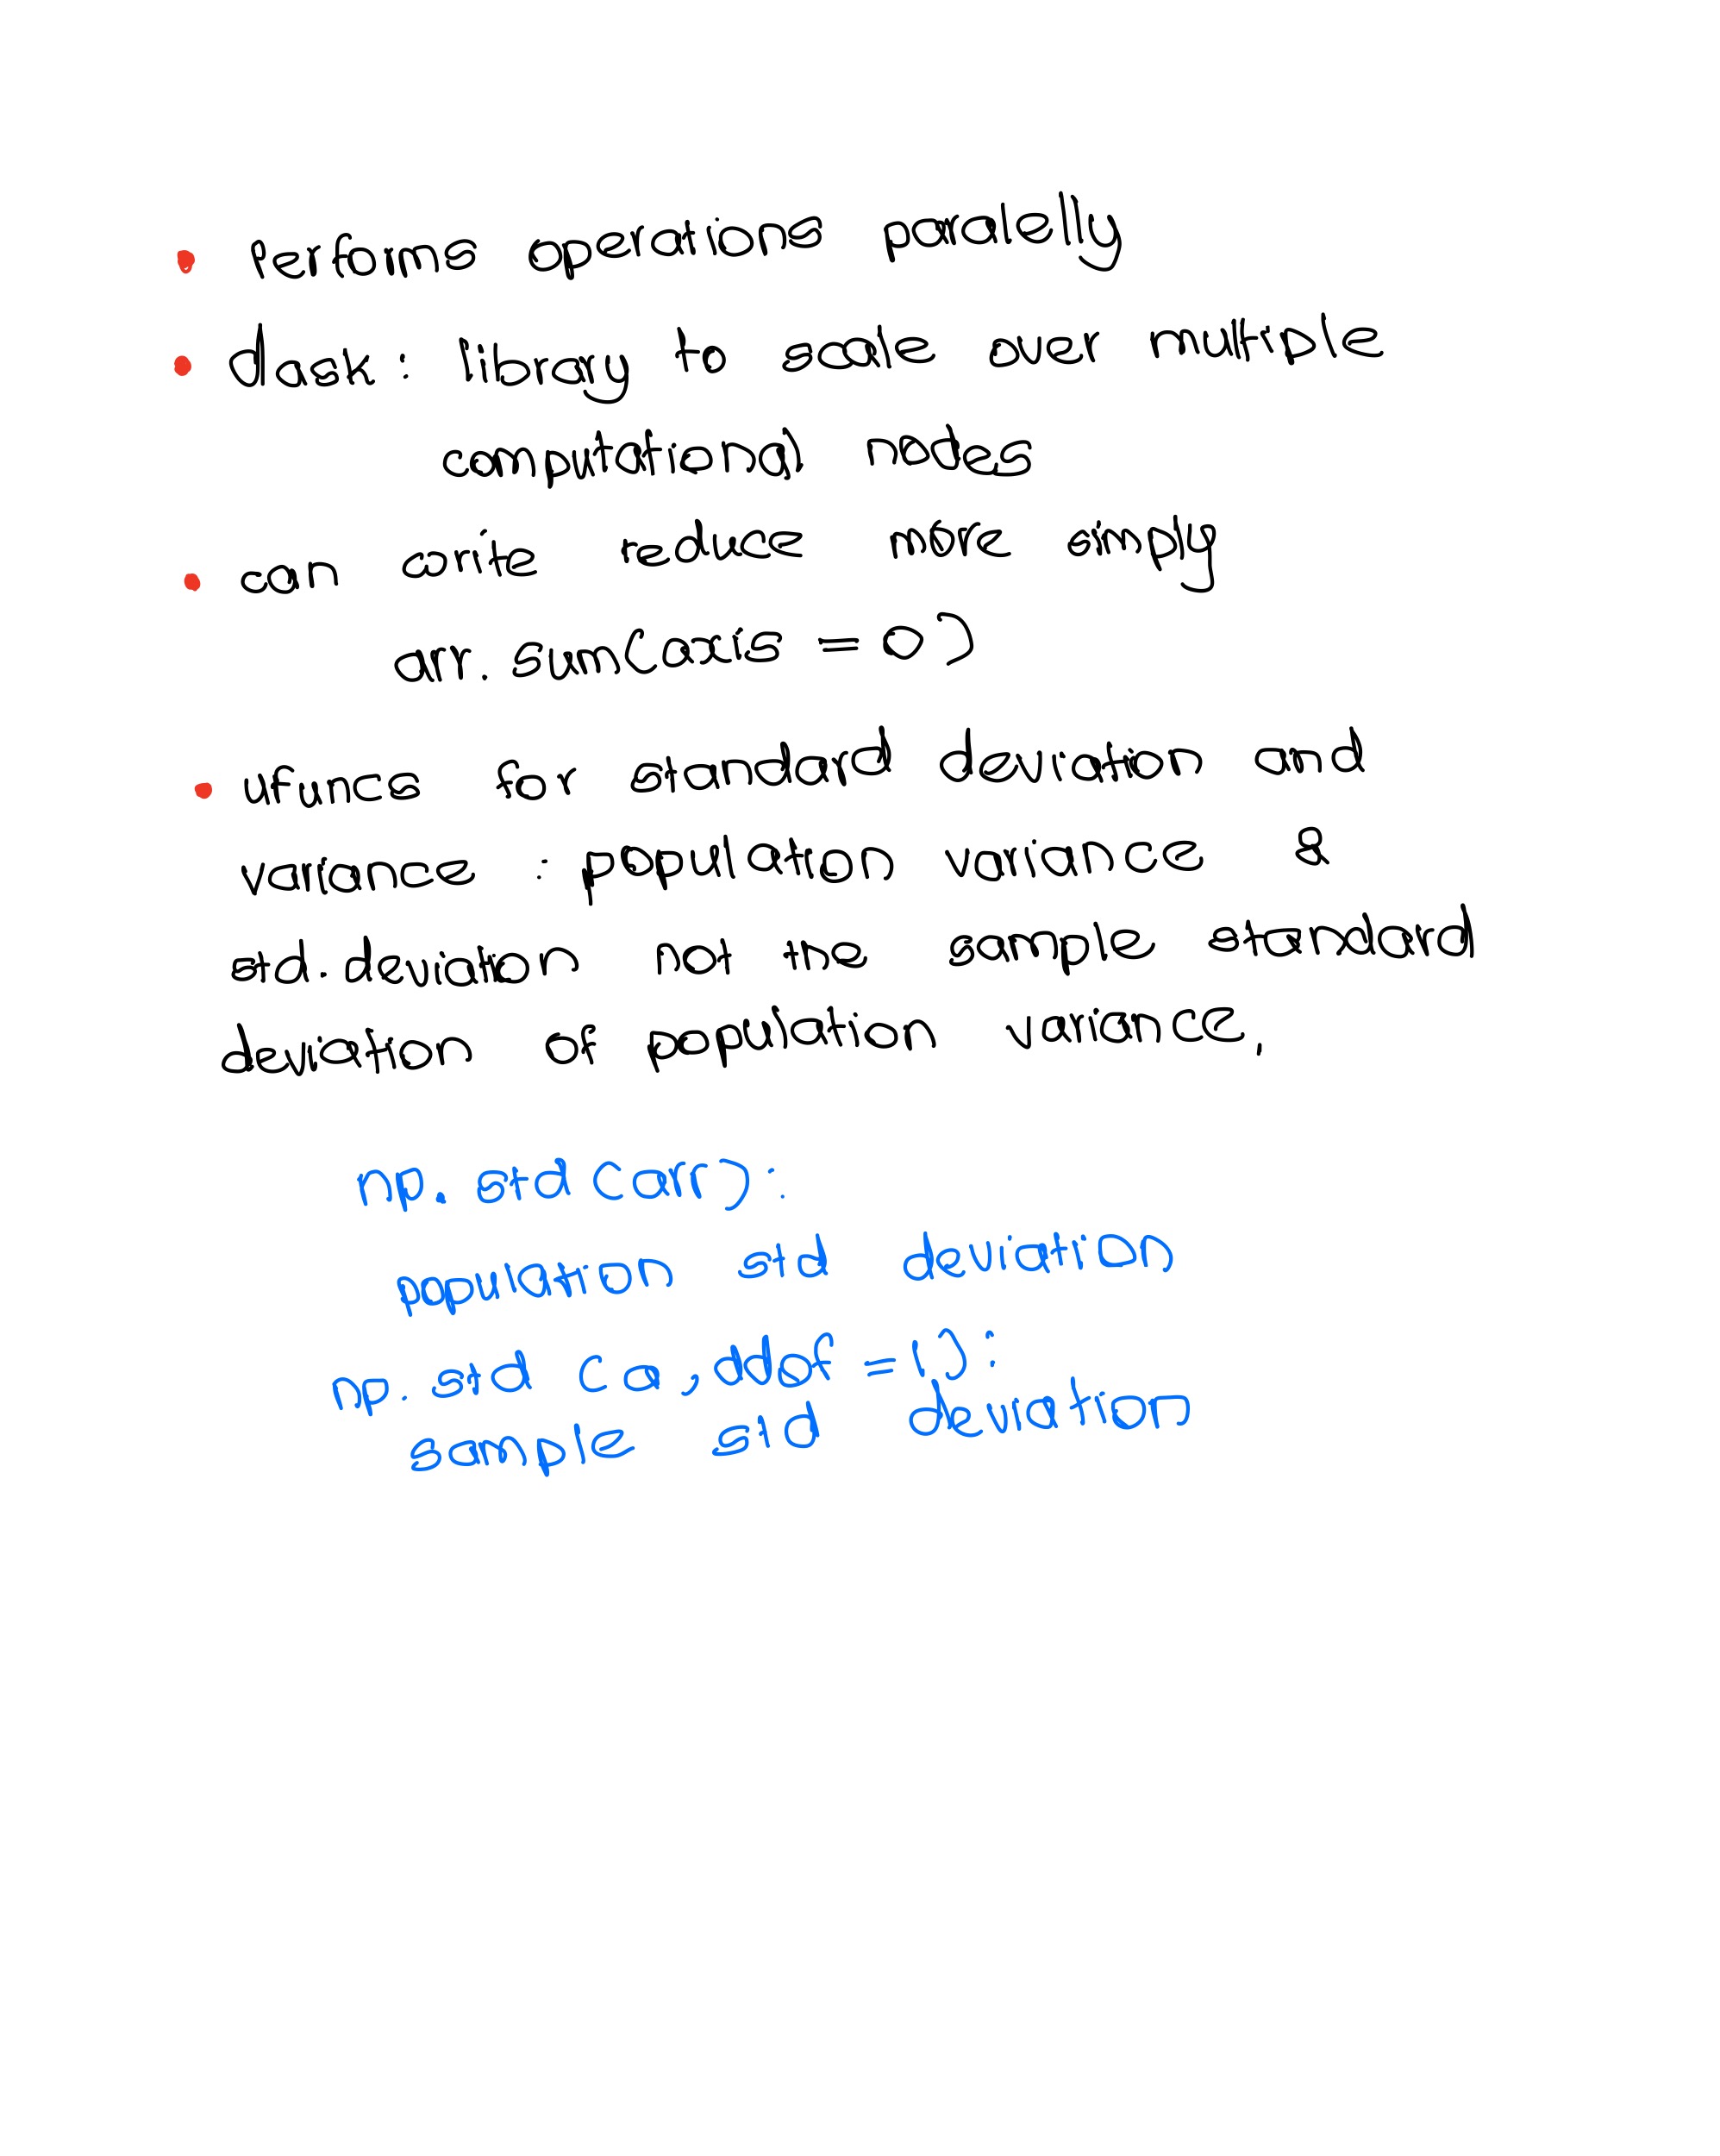 • Performs operations paralelly
• dask: library to scale over multiple
computational nodes
• can write reduce more simply
arr.sum(axis = 0)
• ufuncs for standard deviation and
variance : population variance &
std. deviation not the sample standard
deviation of population variance.
np. std (arr):
population std deviation
np. std (a, ddof = 1):
sample std deviation